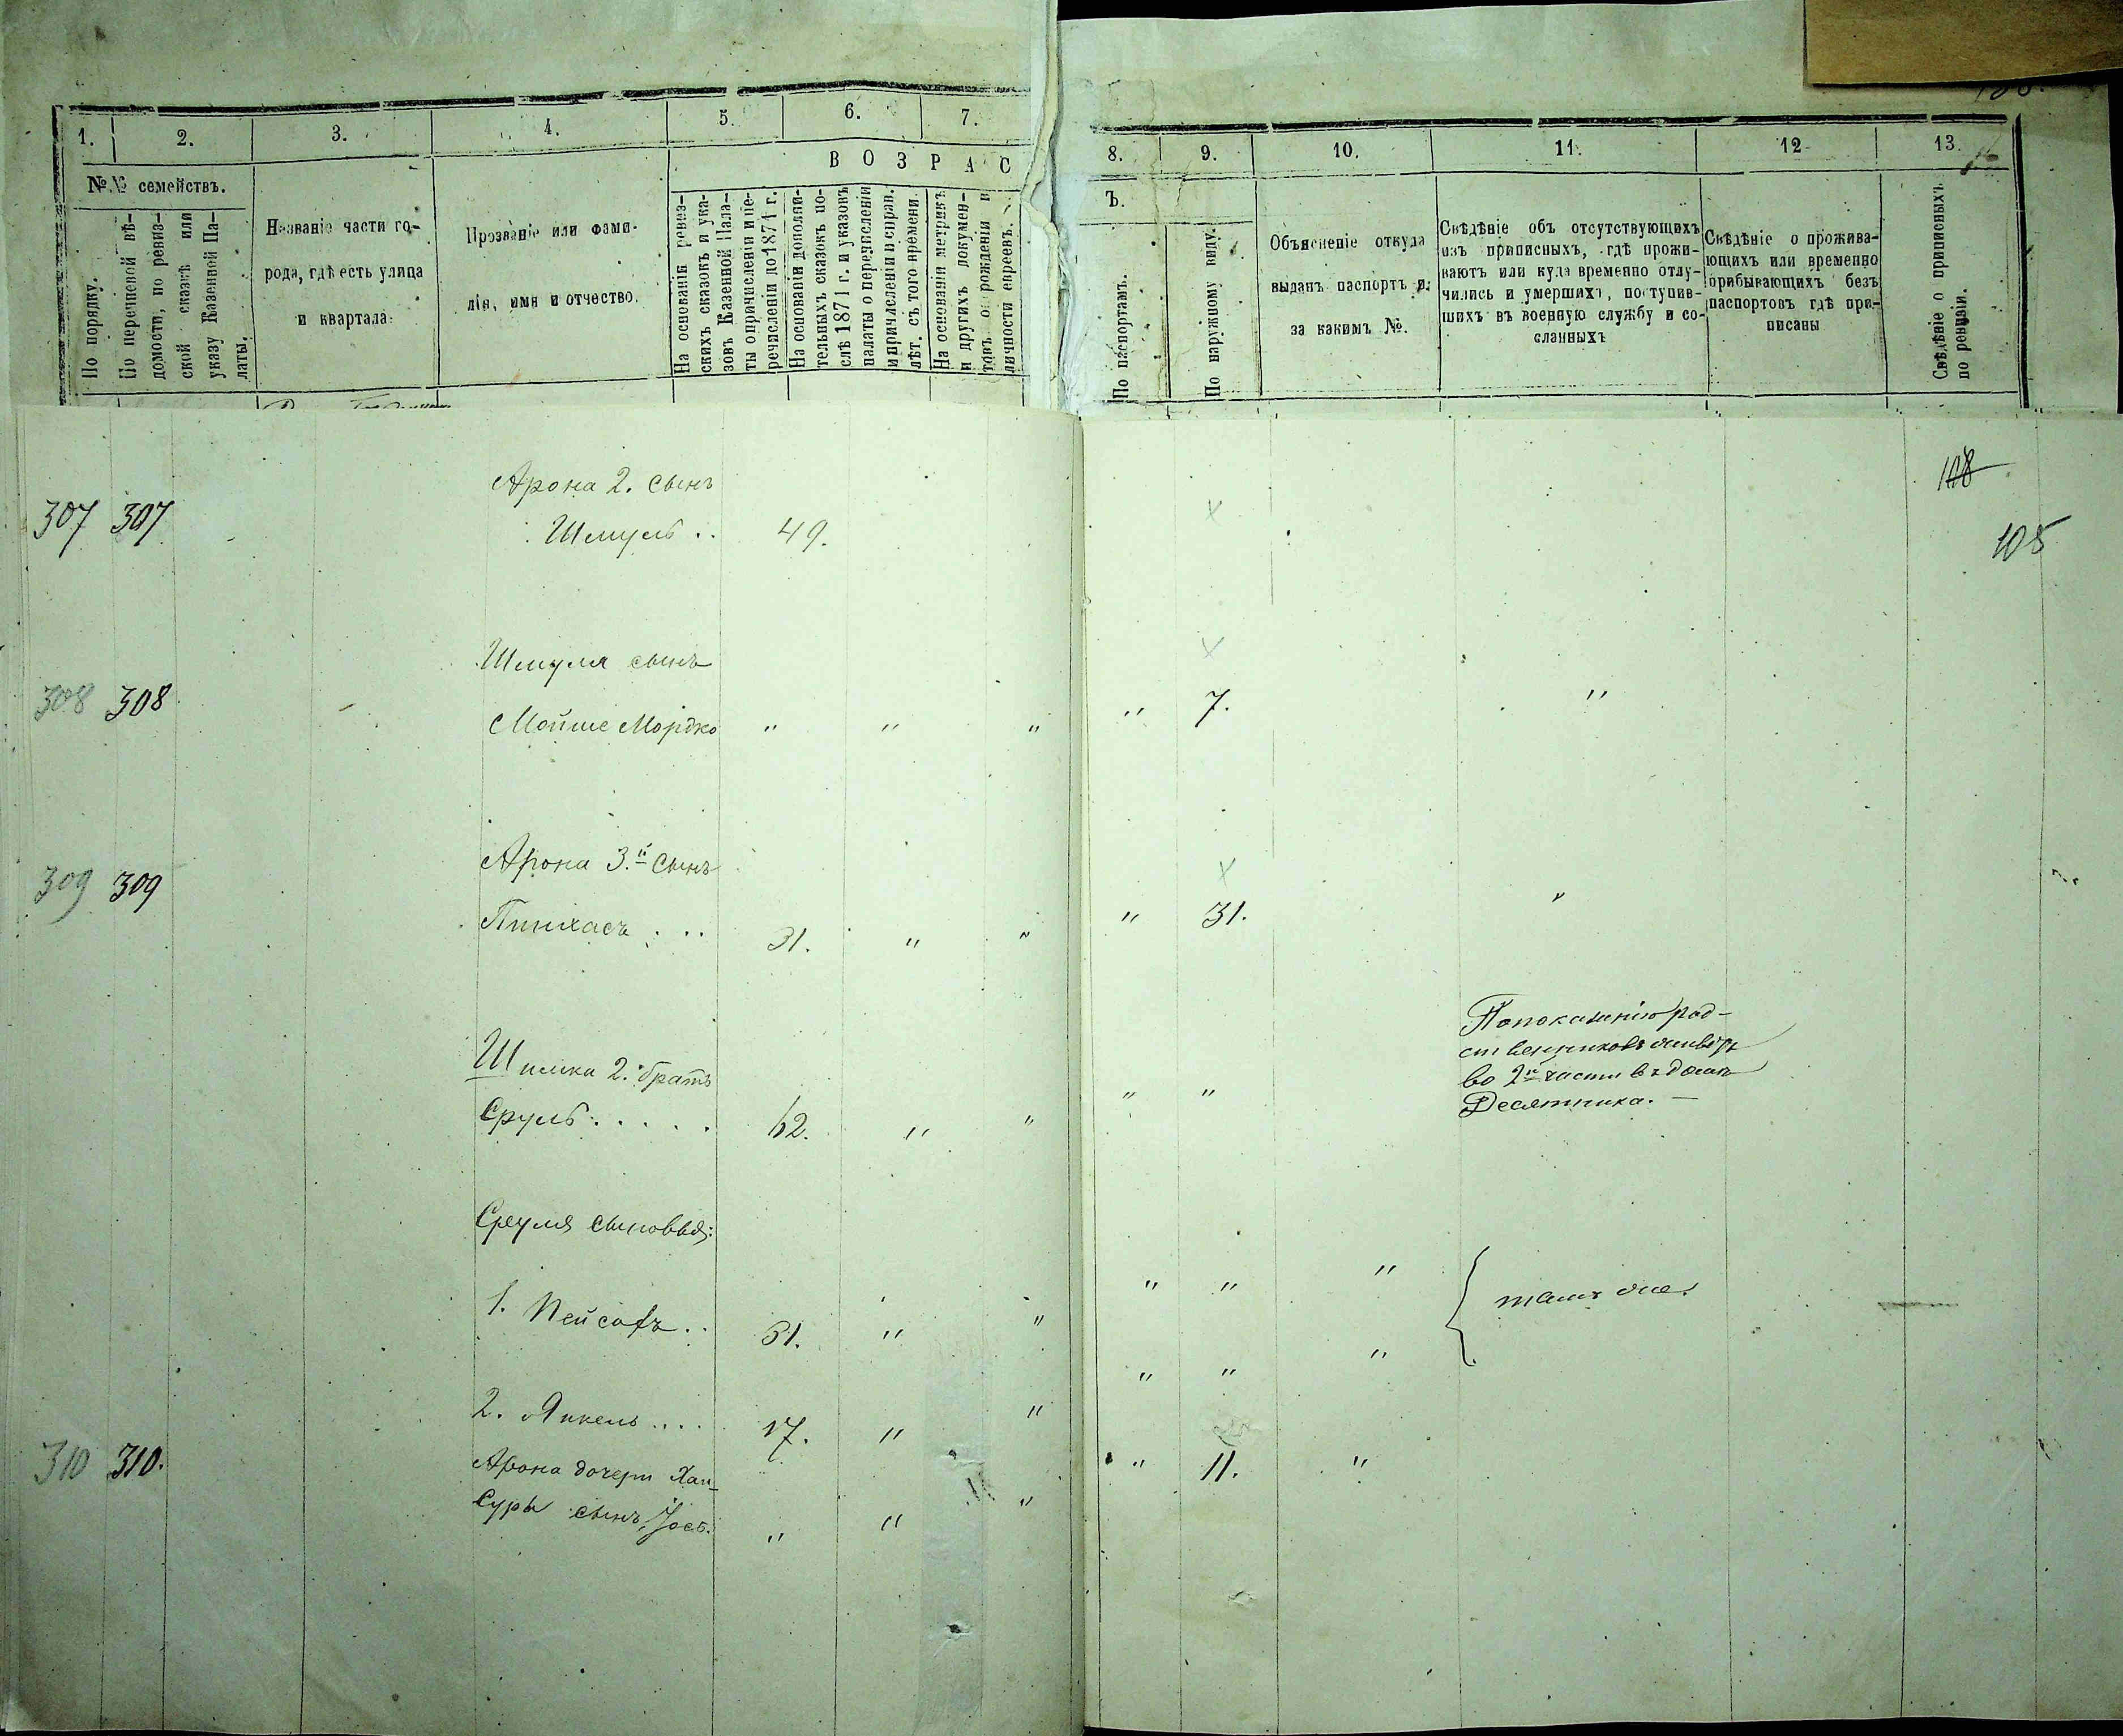 1. 2. 3. 4. 5. 6. 7.
8. 9. 10. 11. 12 13.
В О З Р А С
Ъ.
№№ семействъ.
По порядку.
По перечневой вѣ-
домости, по ревиз-
ской сказкѣ или
указу Казенной Па-
латы.
Названіе части го-
рода, гдѣ есть улица
и квартала.
Прозваніе или фами-
лія, имя и отчество.
На основаніи ревиз-
скихъ сказокъ и ука-
зовъ Казенной Пала-
ты о причисленіи и пе-
речисленіи до 1871 г.
На основаніи дополни-
тельныхъ сказокъ по-
слѣ 1871 г. и указовъ
палаты о перечисленіи
и причисленіи и справ.
лѣт. съ того времени.
На основаніи метрикъ
и другихъ докумен-
товъ о рожденіи и
личности евреевъ.
По паспортамъ.
По наружному виду.
Объясненіе откуда
выданъ паспортъ и
за какимъ №.
Свѣдѣніе объ отсутствующихъ
изъ приписныхъ, гдѣ прожи-
ваютъ или куда временно отлу-
чились и умершихъ, поступив-
шихъ въ военную службу и со-
сланныхъ
Свѣдѣніе о прожива-
ющихъ или временно
прибывающихъ безъ
паспортовъ гдѣ при-
писаны
Свѣдѣніе о приписныхъ
по ревизіи.
108
105
Арона 2. сынъ
307 307 Шмуль .. 49.
Шмуля сынъ
308 308 Мойше Мордко " " " " 7. "
Арона 3.й сынъ
309 309 Пинхасъ ... 31. " " " 31. "
Шимка 2. братъ
Сруль ..... 62. " " " "
По показанію род-
ственниковъ живетъ
во 2й части въ домѣ
Десятника. —
Сруля сыновья:
1. Пейсахъ .. 31. " " " " "
тамъ же.
2. Янкель .... 17. " " " " "
310 310. Арона дочери Хаи-
Суры сынъ Іось. " " " " 11. "